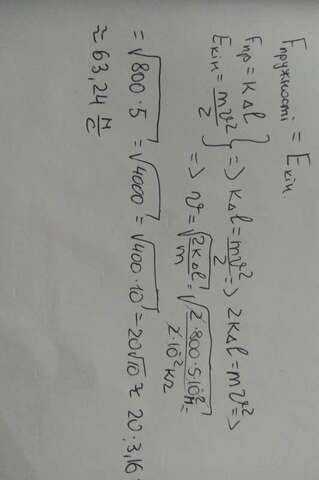 Fпружності = Eкін.
Fпр = kΔl
Eкін = mv²/2 } => kΔl = mv²/2 => 2kΔl = mv² =>
=> v = √(2kΔl/m) = √(2·800·5·10⁻²Н/2·10⁻²кг) =
= √800·5 = √4000 = √400·10 = 20√10 ≈ 20·3,16
≈ 63,24 м/с